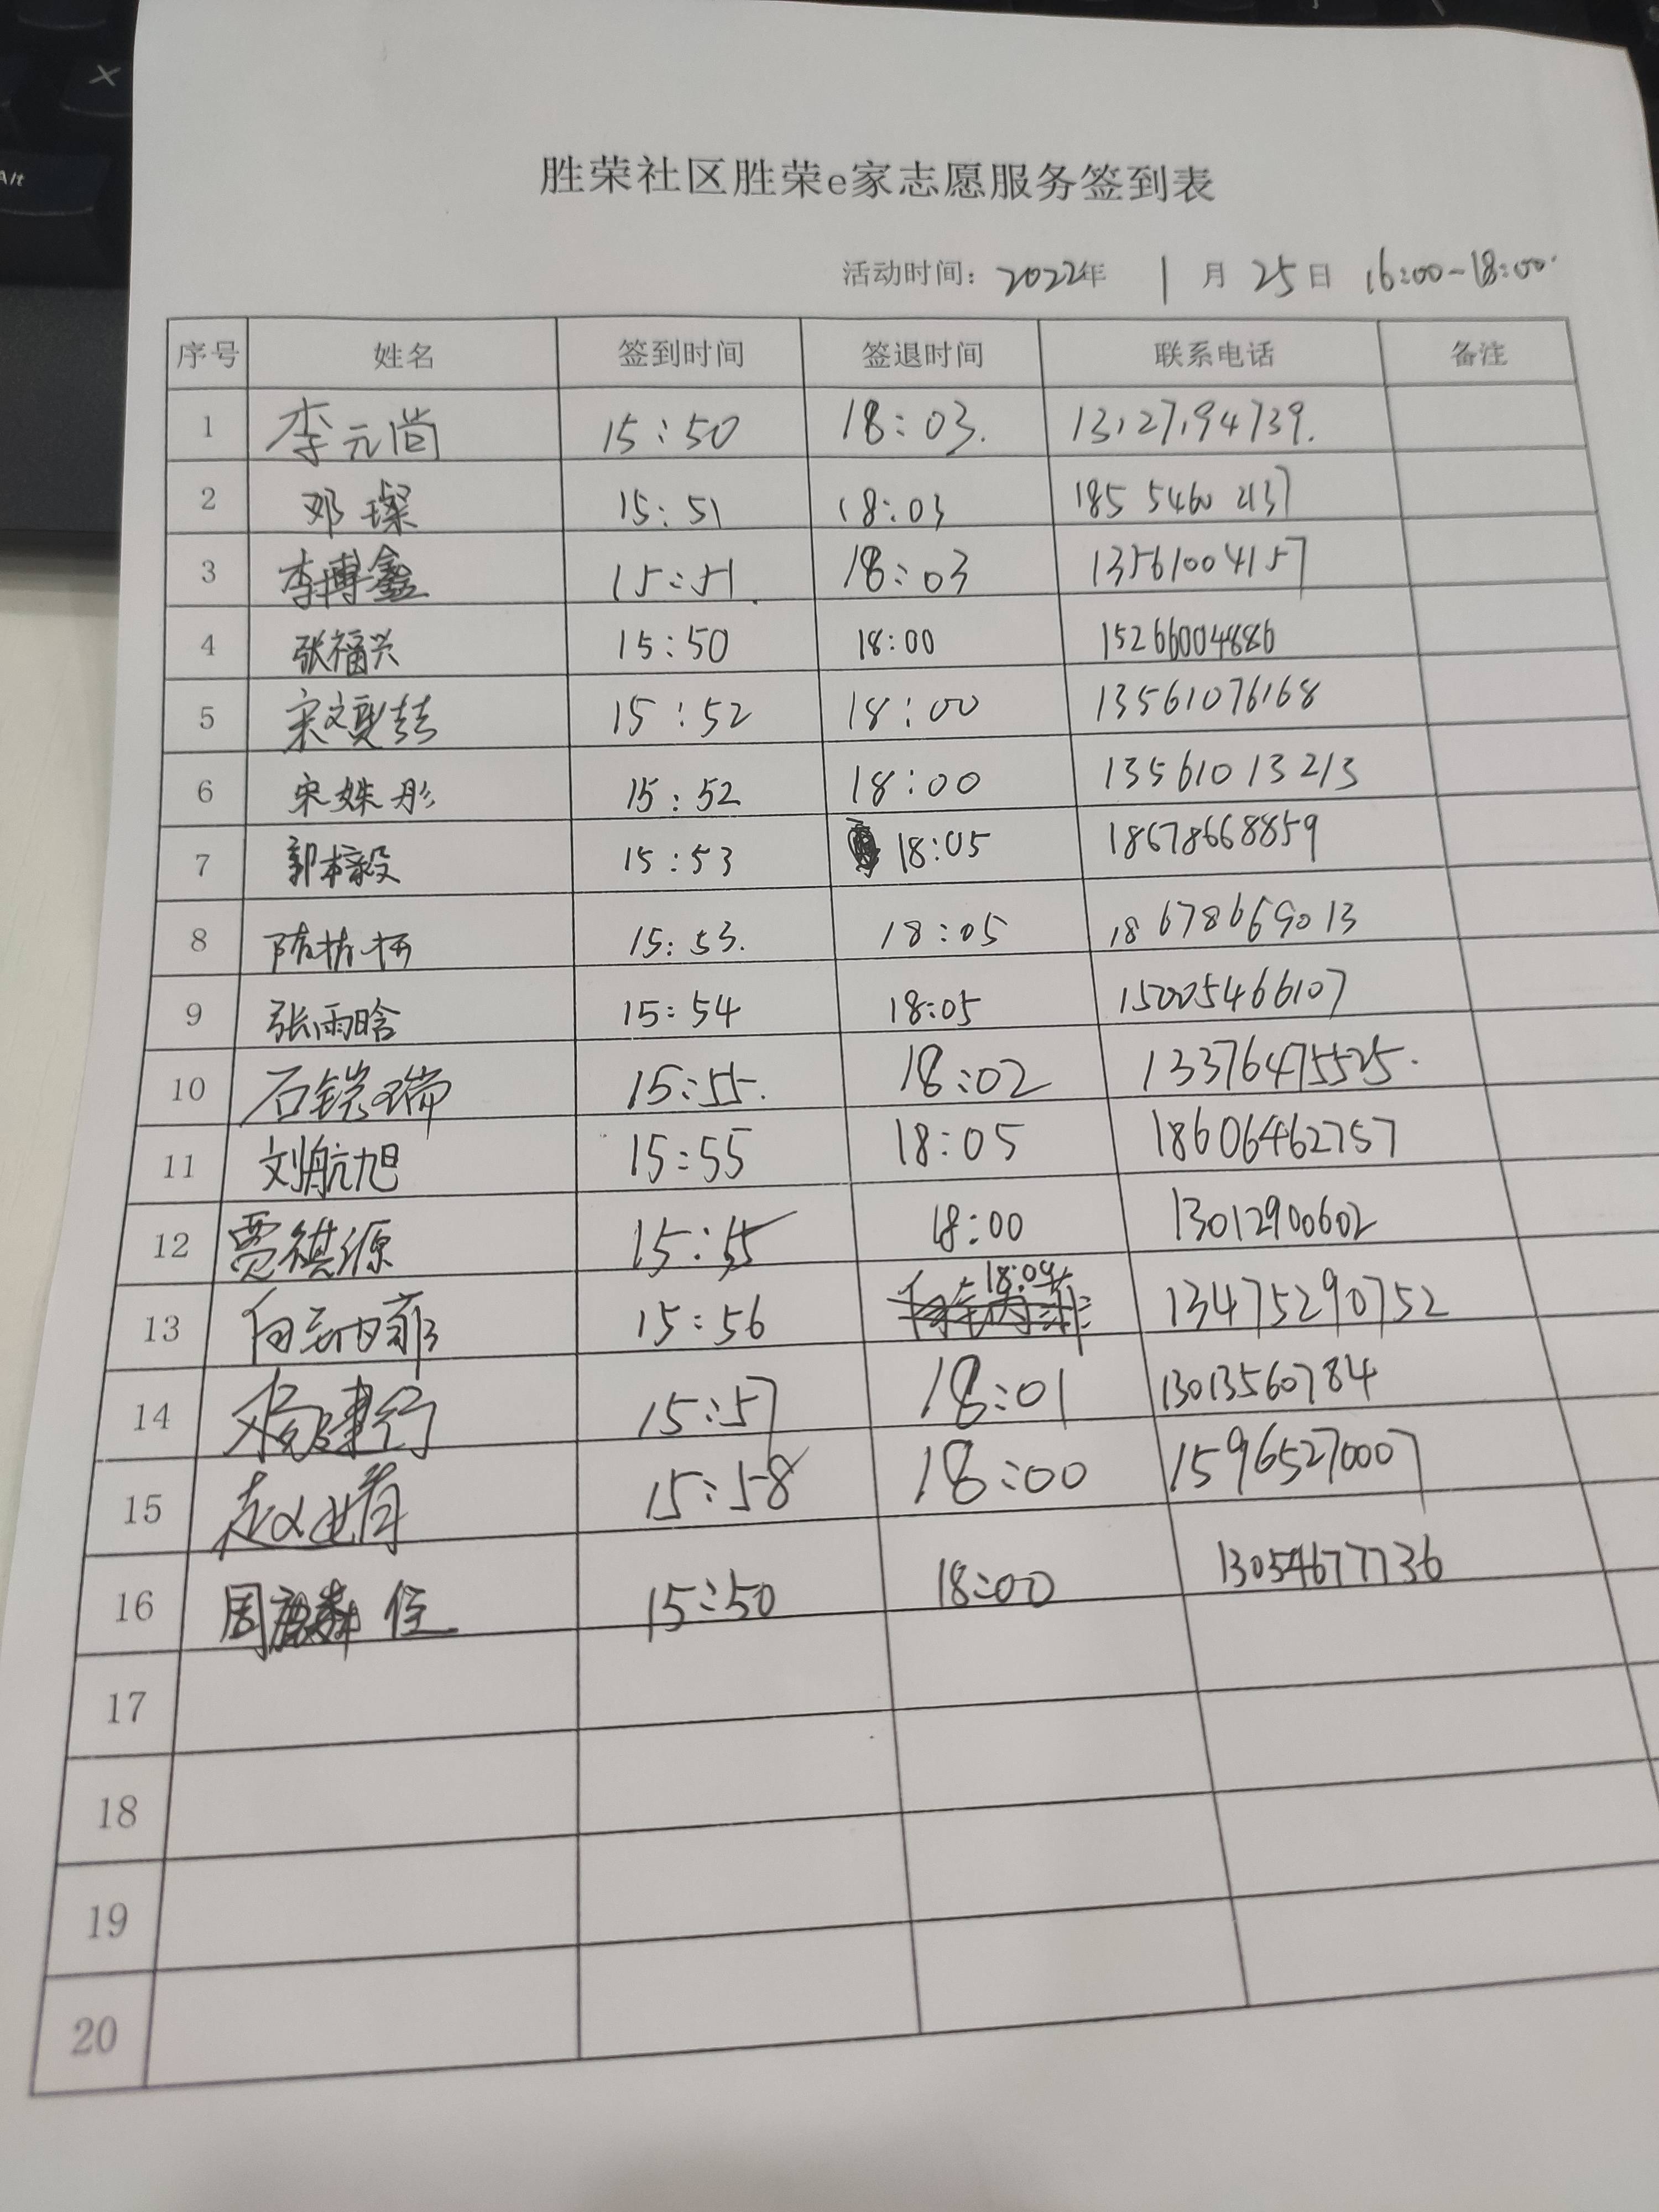 胜荣社区胜荣e家志愿服务签到表
活动时间：2022年 1月25日 16:00-18:00
序号 姓名 签到时间 签退时间 联系电话 备注
1 李元尚 15:50 18:03. 13127194739.
2 邓璨 15:51 18:03 185 5460 2137
3 李博鑫 15:51. 18:03 13561004157
4 张福兴 15:50 18:00 15266004886
5 宋文夏喆 15:52 18:00 13561076168
6 宋姝彤 15:52 18:00 13561013213
7 郭梓毅 15:53 18:05 18678668859
8 15:53. 18:05 18678669013
9 张雨晗 15:54 18:05 15005466107
10 石铠瑞 15:55. 18:02 13376475525.
11 刘航旭 15:55 18:05 18606462757
12 贾祺源 15:55 18:00 13012900602
13 15:56 18:04 13475290752
14 杨建行 15:57 18:01 13013560784
15 15:58 18:00 15965270007
16 周 15:50 18:00 13054677736
17
18
19
20